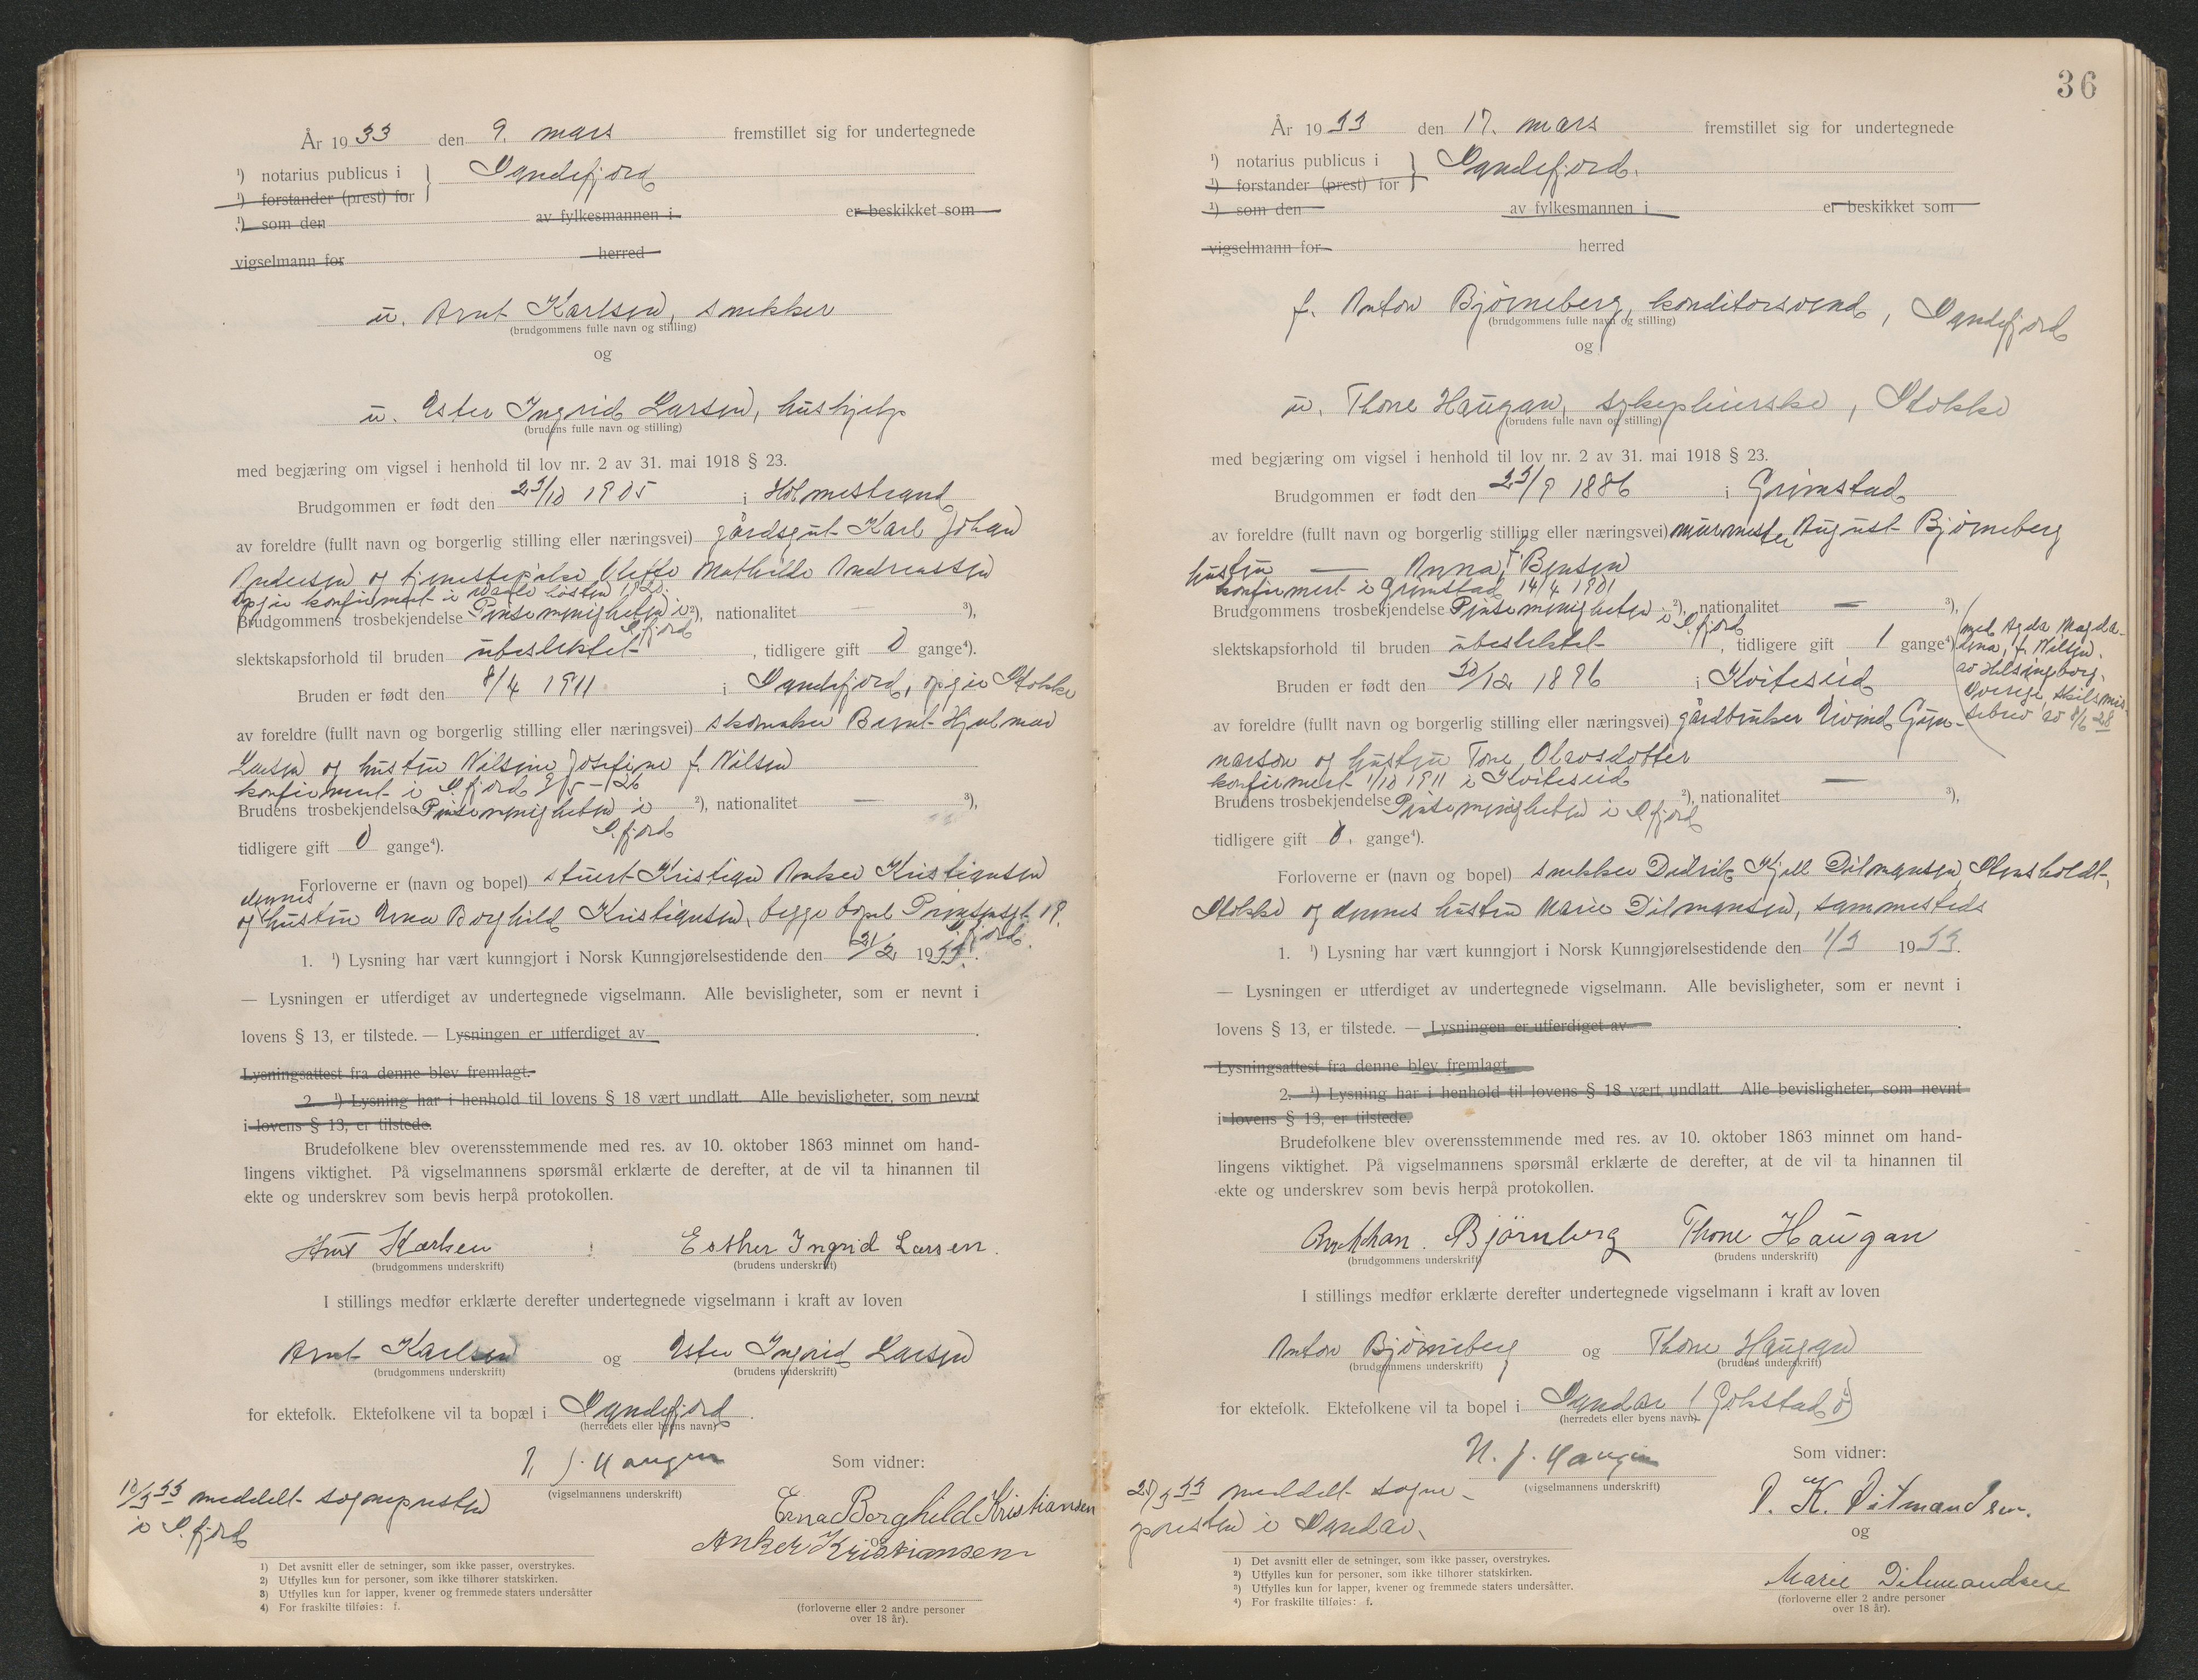 År 1933 den 9. mars fremstillet sig for undertegnede
¹) notarius publicus i } Sandefjord
¹) forstander (prest) for
¹) som den av fylkesmannen i er beskikket som
vigselmann for herred
u. Arnt Karlsen, snekker
(brudgommens fulle navn og stilling)
og
u. Ester Ingrid Larsen, hushjelp
(brudens fulle navn og stilling)
med begjæring om vigsel i henhold til lov nr. 2 av 31. mai 1918 § 23.
Brudgommen er født den 23/10 1905 i Holmestrand
av foreldre (fullt navn og borgerlig stilling eller næringsvei) gårdsgut Karl Johan
Andersen og tjenestepike Mathilde Andreassen
opgir konfirmert i høsten 1920.
Brudgommens trosbekjendelse Pinsemenigheten i S.fjord ²), nationalitet — ³),
slektskapsforhold til bruden ubeslektet, tidligere gift 0 gange⁴).
Bruden er født den 8/4 1911 i Sandefjord, opgir Stokke
av foreldre (fullt navn og borgerlig stilling eller næringsvei) skomaker Bernt Hjalmar
Larsen og hustru Nilsine Josefine f. Nilsen
konfirmert i S.fjord 9/5-26
Brudens trosbekjendelse Pinsemenigheten i S.fjord ²), nationalitet — ³),
tidligere gift 0 gange⁴).
Forloverne er (navn og bopel) stuert Kristian Anker Kristiansen
og dennes hustru Erna Borghild Kristiansen, begge bopel Prinsensgt. 19. S.fjord.
1. ¹) Lysning har vært kunngjort i Norsk Kunngjørelsestidende den 21/2 1933.
— Lysningen er utferdiget av undertegnede vigselmann. Alle bevisligheter, som er nevnt i
lovens § 13, er tilstede. — Lysningen er utferdiget av
Lysningsattest fra denne blev fremlagt.
2. ¹) Lysning har i henhold til lovens § 18 vært undlatt. Alle bevisligheter, som nevnt
i lovens § 13, er tilstede.
Brudefolkene blev overensstemmende med res. av 10. oktober 1863 minnet om hand-
lingens viktighet. På vigselmannens spørsmål erklærte de derefter, at de vil ta hinannen til
ekte og underskrev som bevis herpå protokollen.
Arnt Karlsen Esther Ingrid Larsen.
(brudgommens underskrift) (brudens underskrift)
I stillings medfør erklærte derefter undertegnede vigselmann i kraft av loven
Arnt Karlsen og Ester Ingrid Larsen
(brudgommens underskrift) (brudens underskrift)
for ektefolk. Ektefolkene vil ta bopæl i Sandefjord.
(herredets eller byens navn)
N. J. Haugen Som vidner:
(vigselmannens underskrift)
10/3 33 meddelt sognepresten
i S.fjord
Erna Borghild Kristiansen
og
Anker Kristiansen
(forloverne eller 2 andre personer
over 18 år).
1) Det avsnitt eller de setninger, som ikke passer, overstrykes.
2) Utfylles kun for personer, som ikke tilhører statskirken.
3) Utfylles kun for lapper, kvener og fremmede staters undersåtter
4) For fraskilte tilføies: f.
36
År 1933 den 17. mars fremstillet sig for undertegnede
¹) notarius publicus i } Sandefjord.
¹) forstander (prest) for
¹) som den av fylkesmannen i er beskikket som
vigselmann for herred
f. Anton Bjørneberg, konditorsvend, Sandefjord
(brudgommens fulle navn og stilling)
og
u. Thone Haugan, sykepleierske, Stokke
(brudens fulle navn og stilling)
med begjæring om vigsel i henhold til lov nr. 2 av 31. mai 1918 § 23.
Brudgommen er født den 23/9 1886 i Grimstad
av foreldre (fullt navn og borgerlig stilling eller næringsvei) murmester August Bjørneberg
hustru — Anna f. Bensen
konfirmert i Grimstad 14/4 1901
Brudgommens trosbekjendelse Pinsemenigheten i S.fjord ²), nationalitet — ³),
slektskapsforhold til bruden ubeslektet, tidligere gift 1 gange⁴)
(med Agda Magda-
lena, f. Nilsen.
av Helsingborg,
Sverige, skilsmis-
sebrev av 8/6 28
Bruden er født den 30/12 1896 i Kviteseid
av foreldre (fullt navn og borgerlig stilling eller næringsvei) gårdbruker Eivind Gun-
narson og hustru Tone Olavsdotter
konfirmert 1/10 1911 i Kviteseid
Brudens trosbekjendelse Pinsemenigheten i S.fjord ²), nationalitet — ³),
tidligere gift 0. gange⁴).
Forloverne er (navn og bopel) snekker Didrik Kjell Ditmansen, Stensholdt,
Stokke og dennes hustru Marie Ditmansen, sammesteds
1. ¹) Lysning har vært kunngjort i Norsk Kunngjørelsestidende den 1/3 1933.
— Lysningen er utferdiget av undertegnede vigselmann. Alle bevisligheter, som er nevnt i
lovens § 13, er tilstede. — Lysningen er utferdiget av
Lysningsattest fra denne blev fremlagt.
2. ¹) Lysning har i henhold til lovens § 18 vært undlatt. Alle bevisligheter, som nevnt
i lovens § 13, er tilstede.
Brudefolkene blev overensstemmende med res. av 10. oktober 1863 minnet om hand-
lingens viktighet. På vigselmannens spørsmål erklærte de derefter, at de vil ta hinannen til
ekte og underskrev som bevis herpå protokollen.
Bjørnberg Thone Haugan
(brudgommens underskrift) (brudens underskrift)
I stillings medfør erklærte derefter undertegnede vigselmann i kraft av loven
Anton Bjørneberg og Thone Haugan
(brudgommens underskrift) (brudens underskrift)
for ektefolk. Ektefolkene vil ta bopel i Sandar (Gokstad ø)
(herredets eller byens navn)
N. J. Haugen Som vidner:
(vigselmannens underskrift)
20/3 33 meddelt sogne-
presten i Sandar.
D. K. Ditmandsen.
og
Marie Ditmandsen
(forloverne eller 2 andre personer
over 18 år).
1) Det avsnitt eller de setninger, som ikke passer, overstrykes.
2) Utfylles kun for personer, som ikke tilhører statskirken.
3) Utfylles kun for lapper, kvener og fremmede staters undersåtter.
4) For fraskilte tilføies: f.